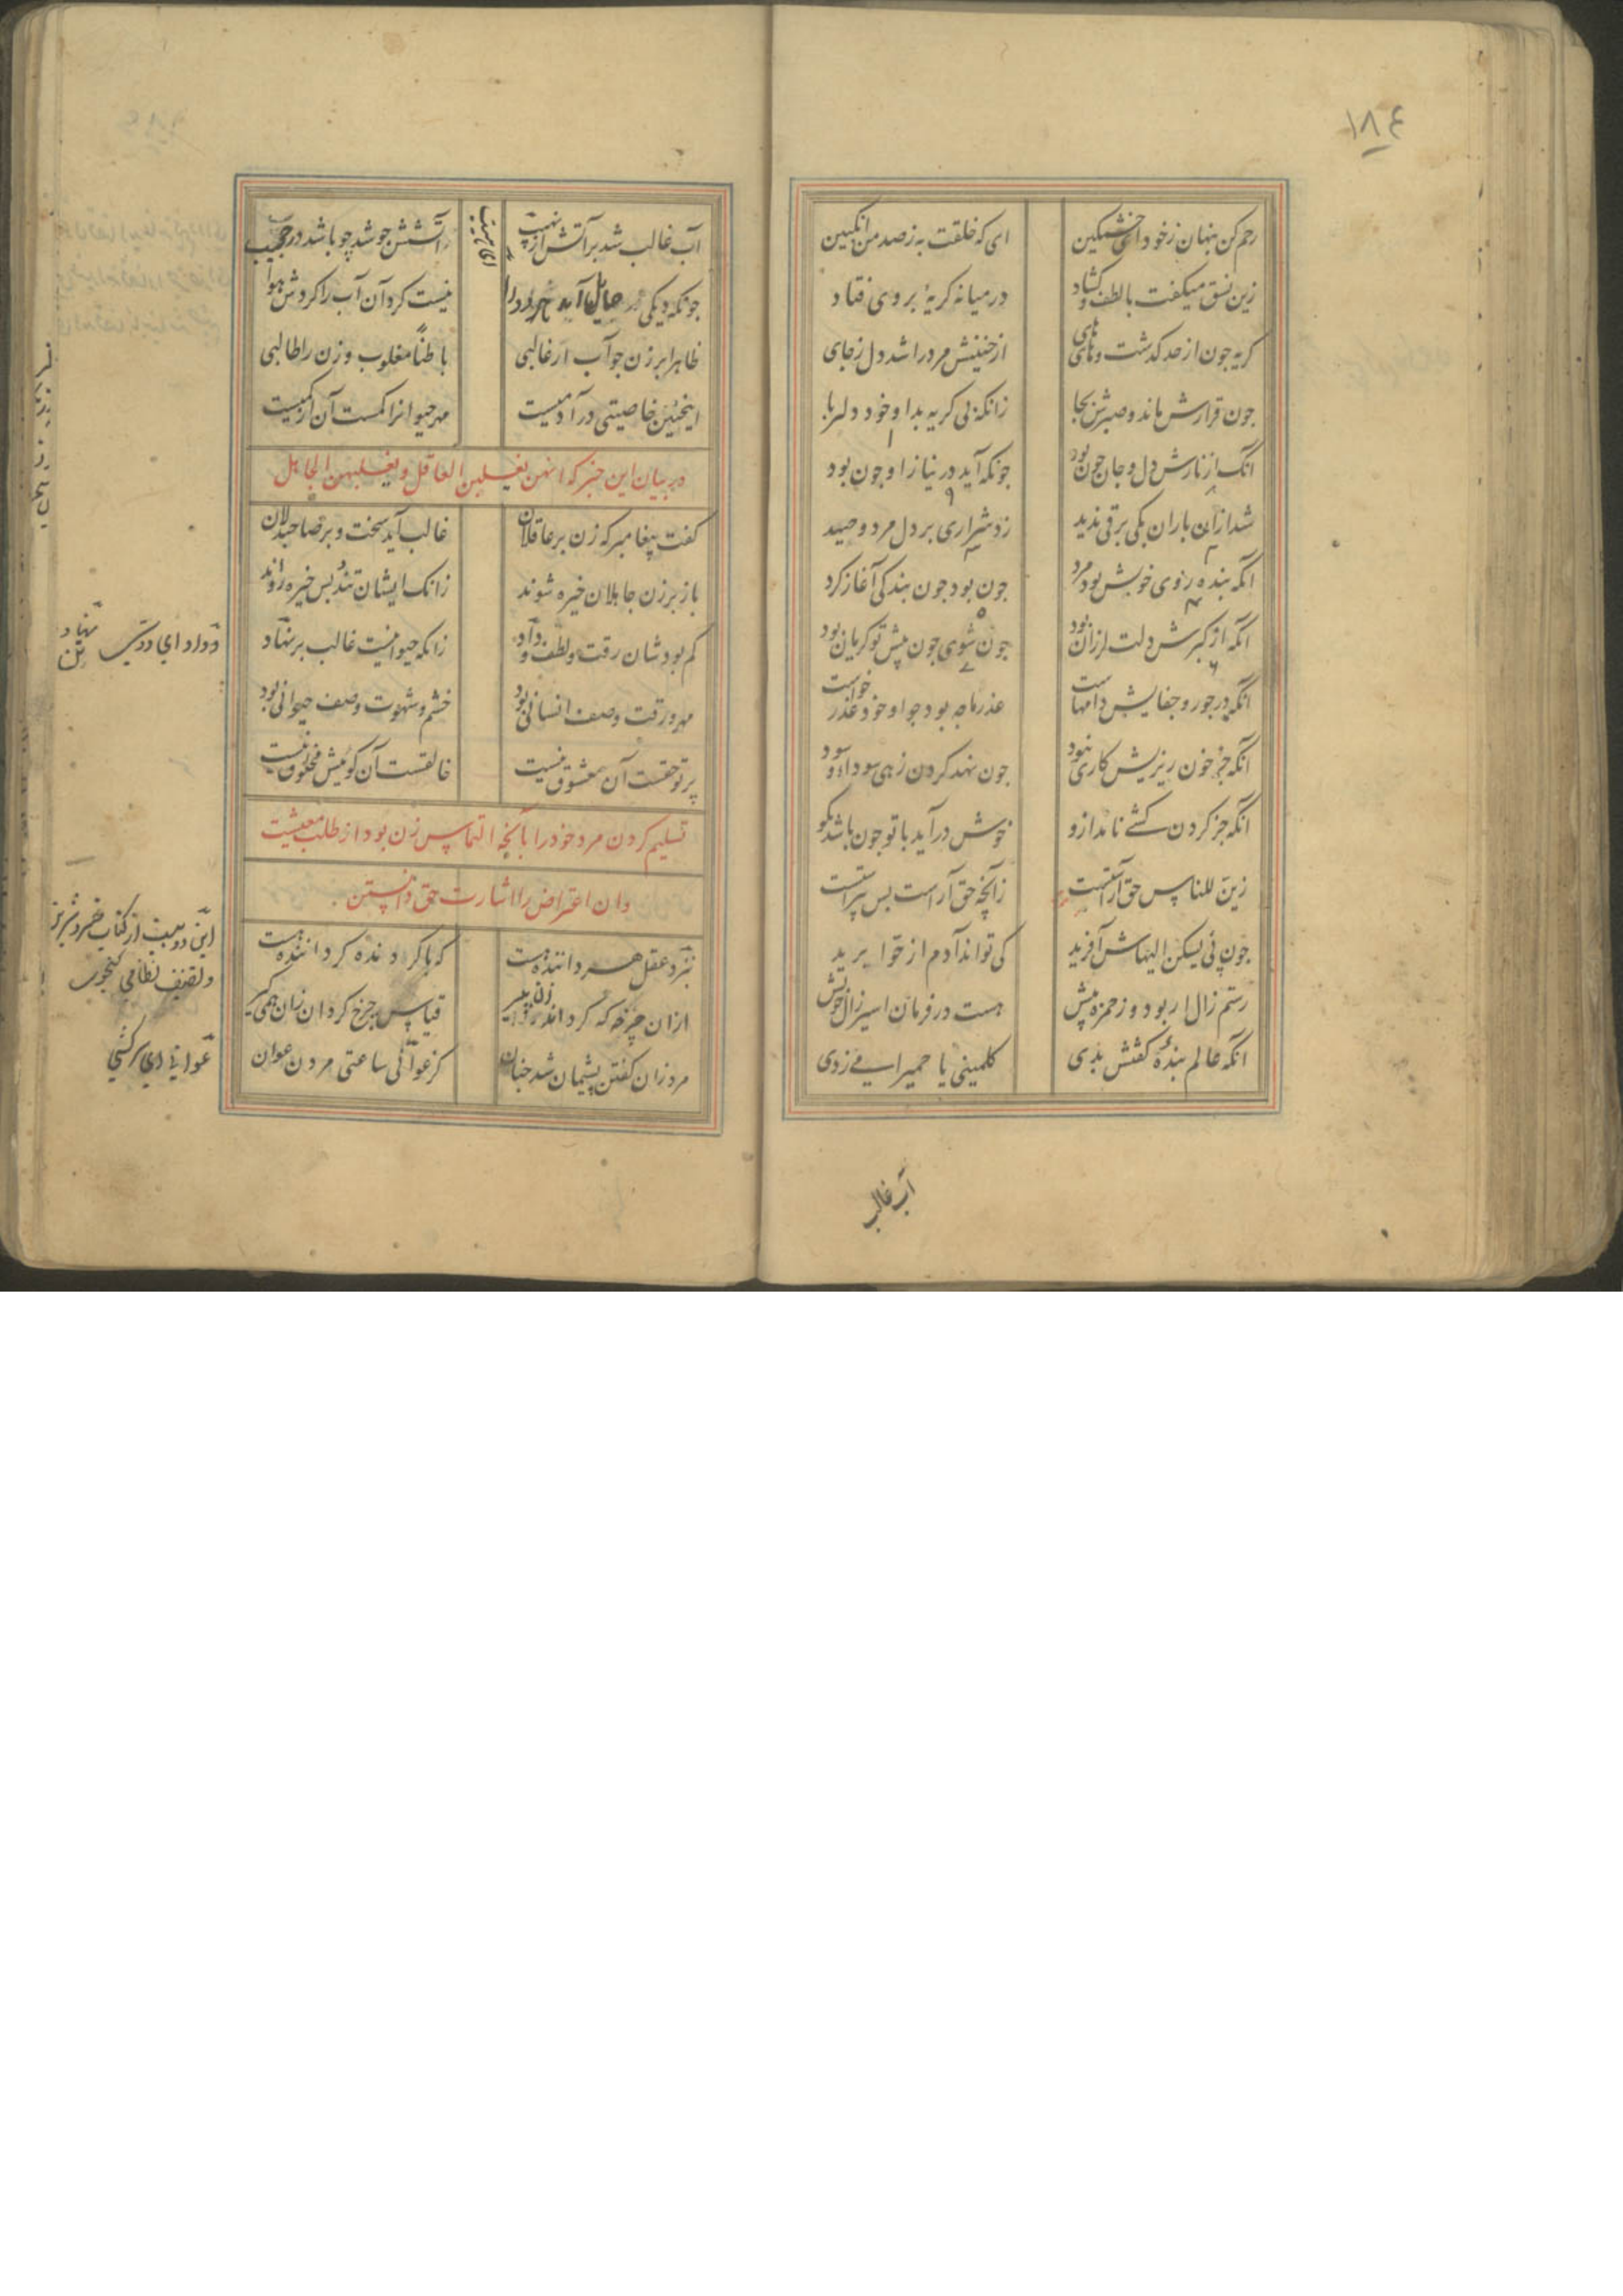 ١٨٤
رحم کن پنهان ز خود ای خشمگین ای که خلقت به ز صد من انگبین
زین نسق میکفت با لطف و کشاد در میانه کریهٔ بر وی فتاد
کریه چون از حد کذشت و های های از حنینش مرد را شد دل ز جای
چون قرارش ماند و صبرش بجا زانکه بی کریه بد او خود دلربا
شد از آن باران یکی برقی پدید زد شراری بر دل مرد وحید
آنکه بندهٔ روی خوبش بود مرد چون بود چون بندکی آغاز کرد
آنکه از کبرش دلت لرزان بود چون شوی چون پیش تو کریان بود
آنک از نازش دل و جان خون بود چونکه آید در نیاز او چون بود
آنکه در جور و جفایش دامهاست عذر ما چه بود چو او خود عذر خواست
آنکه جز خون ریزیش کاری نبود چون نهد کردن زهی سودا و سود
آنکه جز کردن کشی ناید ازو خوش درآید با تو چون باشد بکو
زین للناس حق آراستست زآنچه حق آراست بس پیراستست
چون پی یسکن الیهاش آفرید کی تواند آدم از حوا برید
رستم زال ار بود وز حمزه بیش هست در فرمان اسیر زال خویش
آنکه عالم بندهٔ کفتش بدی کلمینی یا حمیرا می زدی
آب غالب
آب غالب شد بر آتش از نهیب زآتشش جوشد چو باشد در حجیب
چونکه دیکی حایل آید هر دو را نیست کرد آن آب را کردش هوا
ظاهرا بر زن چو آب ار غالبی باطناً مغلوب و زن را طالبی
اینچنین خاصیتی در آدمیست مهر حیوانرا کمست آن از کمیست
در بیان این خبر که انهن یغلبن العاقل و یغلبهن الجاهل
کفت پیغامبر که زن بر عاقلان غالب آید سخت و بر صاحبدلان
باز بر زن جاهلان خیره شوند زانک ایشان تند و بس خیره روند
کم بودشان رقت و لطف و وداد زانکه حیوانیست غالب بر نهاد
مهر و رقت وصف انسانی بود خشم و شهوت وصف حیوانی بود
پرتو حقست آن معشوق نیست خالقست آن کوئیش مخلوق نیست
تسلیم کردن مرد خود را بآنچه التماس زن بود از طلب معیشت
و ان اعتراض را اشارت حق دانستن
بنزد عقل هر داننده هست که با کردنده کرداننده هست
از ان چرخه که کرداند زن پیر قیاس چرخ کردان زان همی کیر
مرد زان کفتن پشیمان شد چنان کز عوانی ساعتی مردن عوان
وداد ای دوستی
نهاد
این دو بیت از کتاب خسرو شیرین
و تصنیف نظامی کنجوی
عوانی ای سرکشی